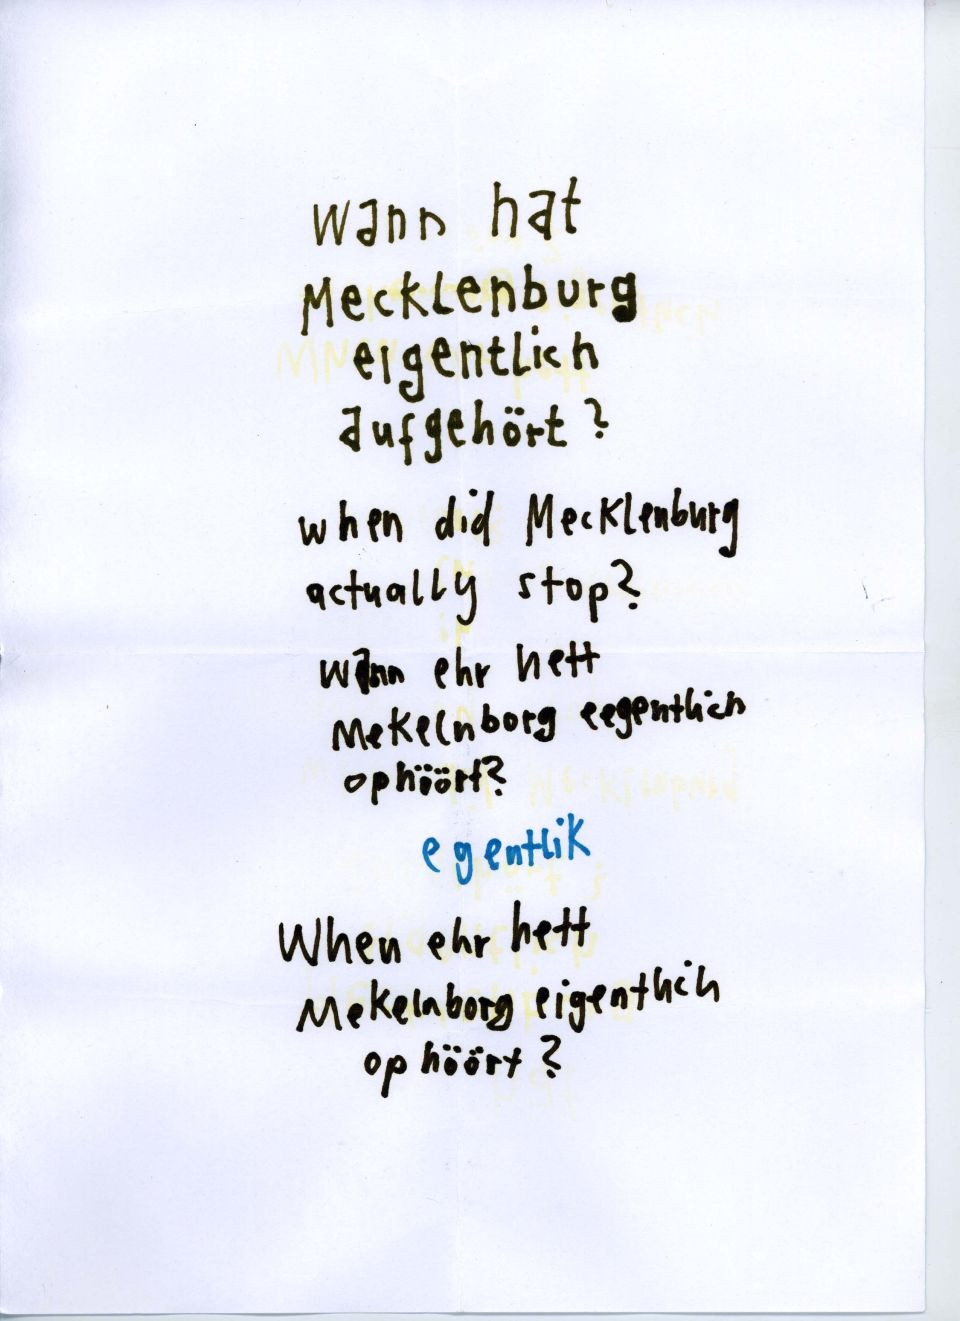 Wann hat
Mecklenburg
eigentlich
aufgehört?
when did Mecklenburg
actually stop?
Wann ehr hett
Mekelnborg eegentlich
ophöört?
egentlik
When ehr hett
Mekelnborg eigentlich
ophöört?